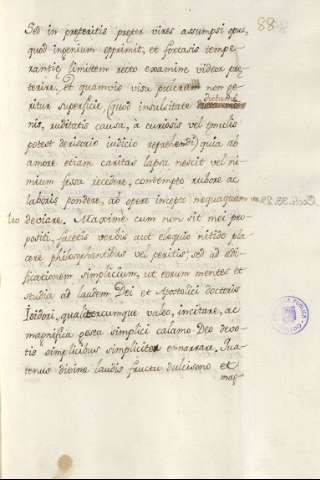 88
Sed in preteritis preter vires assumpsi opus,
quod ingenium opprimit, et fortasis tempe-
rantiæ limitem recto examine videor præ-
terire, et quamvis visa picturam non pe-
ritus superficie, (quod insulsitate dictamini
nis, ruditatis causa, à curiosis vel emulis
potest derisorio iudicio reprehendi) quia ab
amore etiam caritas lapsa nescit vel ni-
mium fessa recedere, contempto rubore ac
laboris pondere, ab opere incepto nequaquam va-
leo deviare. Maxime cum non sit mei pro-
positi, facetis verbis aut eloquio nitido pla
cere philosophantibus vel peritis; sed ad edi-
ficationem simplicium, ut eorum mentes et
studia ad laudem Dei et Apostolici doctoris
Isidori, qualitercumque valeo, incitare, ac
magnifica gesta simplici calamo Deo devo-
tis simplicibus simpliciter enarrare. Qua-
tenus divine laudis fructu dulcisono et
mag-